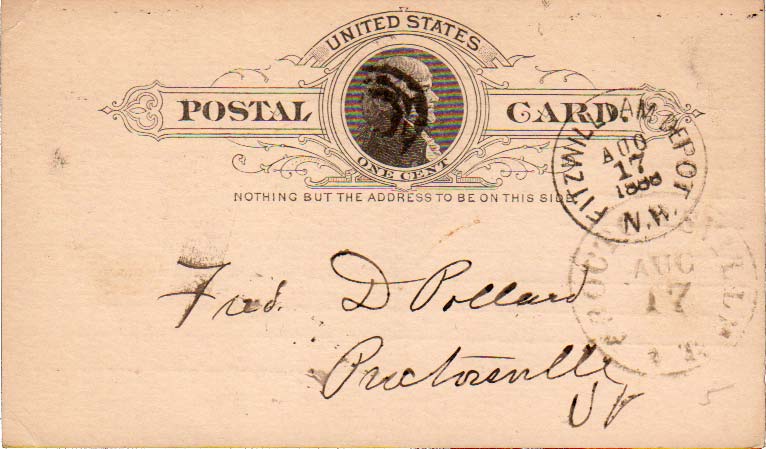 UNITED STATES
POSTAL CARD.
ONE CENT
NOTHING BUT THE ADDRESS TO BE ON THIS SIDE.
FITZWILLIAM DEPOT
AUG
17
1888
N.H.
AUG
17
Fred. D Pollard
Proctorsville
Vt